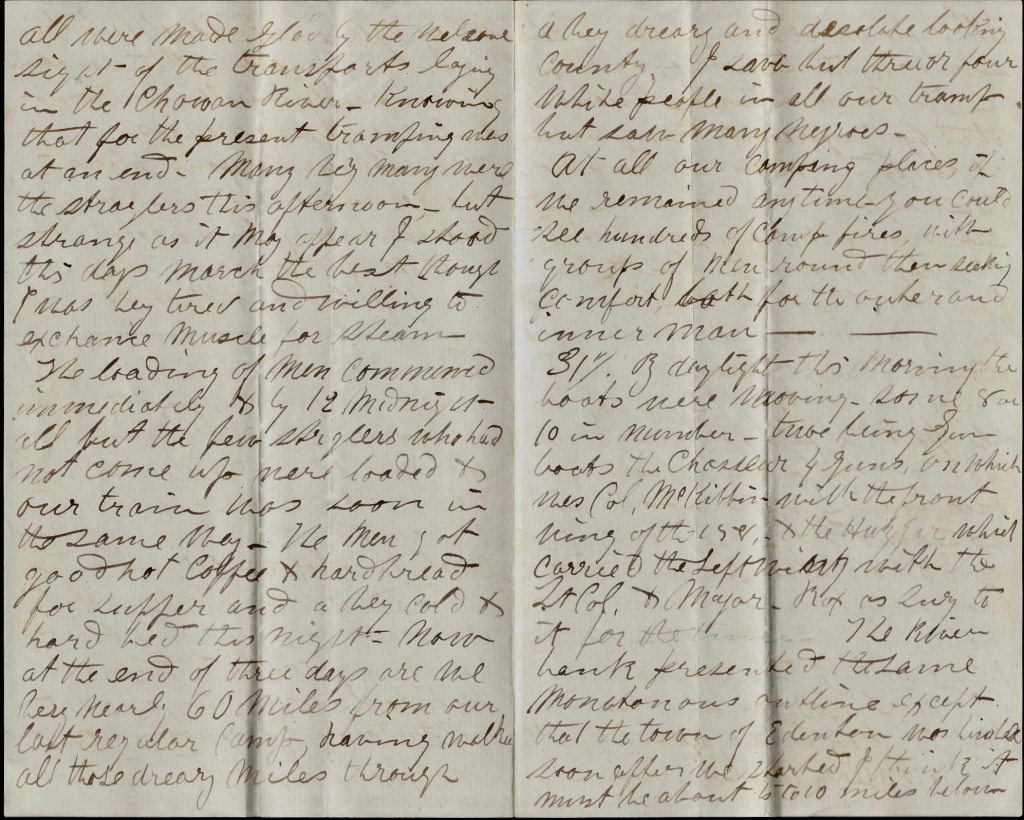 all were made glad by the welcome
sight of the transports laying
in the Chowan River – Knowing
that for the present tramping was
at an end – Many very many were
the straglers this afternoon – but
strange as it may appear I stood
this days march the best though
I was very tired and willing to
exchange Muscle for steam –
The loading of men commenced
immediately & by 12 Midnight
all but the few straglers who had
not come up were loaded &
our train was soon in
the same way – The men got
good hot Coffee & hardbread
for supper and a very cold &
hard bed this night – Now
at the end of three days are we
very nearly 60 miles from our
last regular Camp, having walked
all those dreary miles through
a very dreary and desolate looking
County – I saw but three or four
White people in all our tramp
but saw many Negroes –
At all our Camping places, if
we remained anytime you could
see hundreds of Camp fires, with
groups of men round them seeking
Comfort, both for the outer and
inner man —— ——
31st. By daylight this morning the
boats were moving – some 8 or
10 in number – two being Gun
boats the Chasseur 4 Guns, on which
was Col. McKibbin with the front
wing of the 158, – & the which
carried the Left wing with the
Lt Col. & Major – as Surg to
it for the – The River
bank presented the same
Monotonous outline except
that the town of Edenton was
soon after we started I think it
must be about 5 to 10 miles below